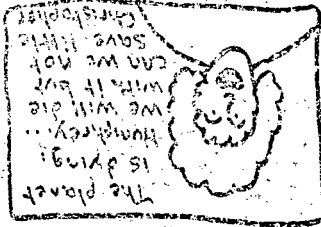 The planet
is dying.
Humphrey...
we will die
with it but
can we not
save little
Christopher